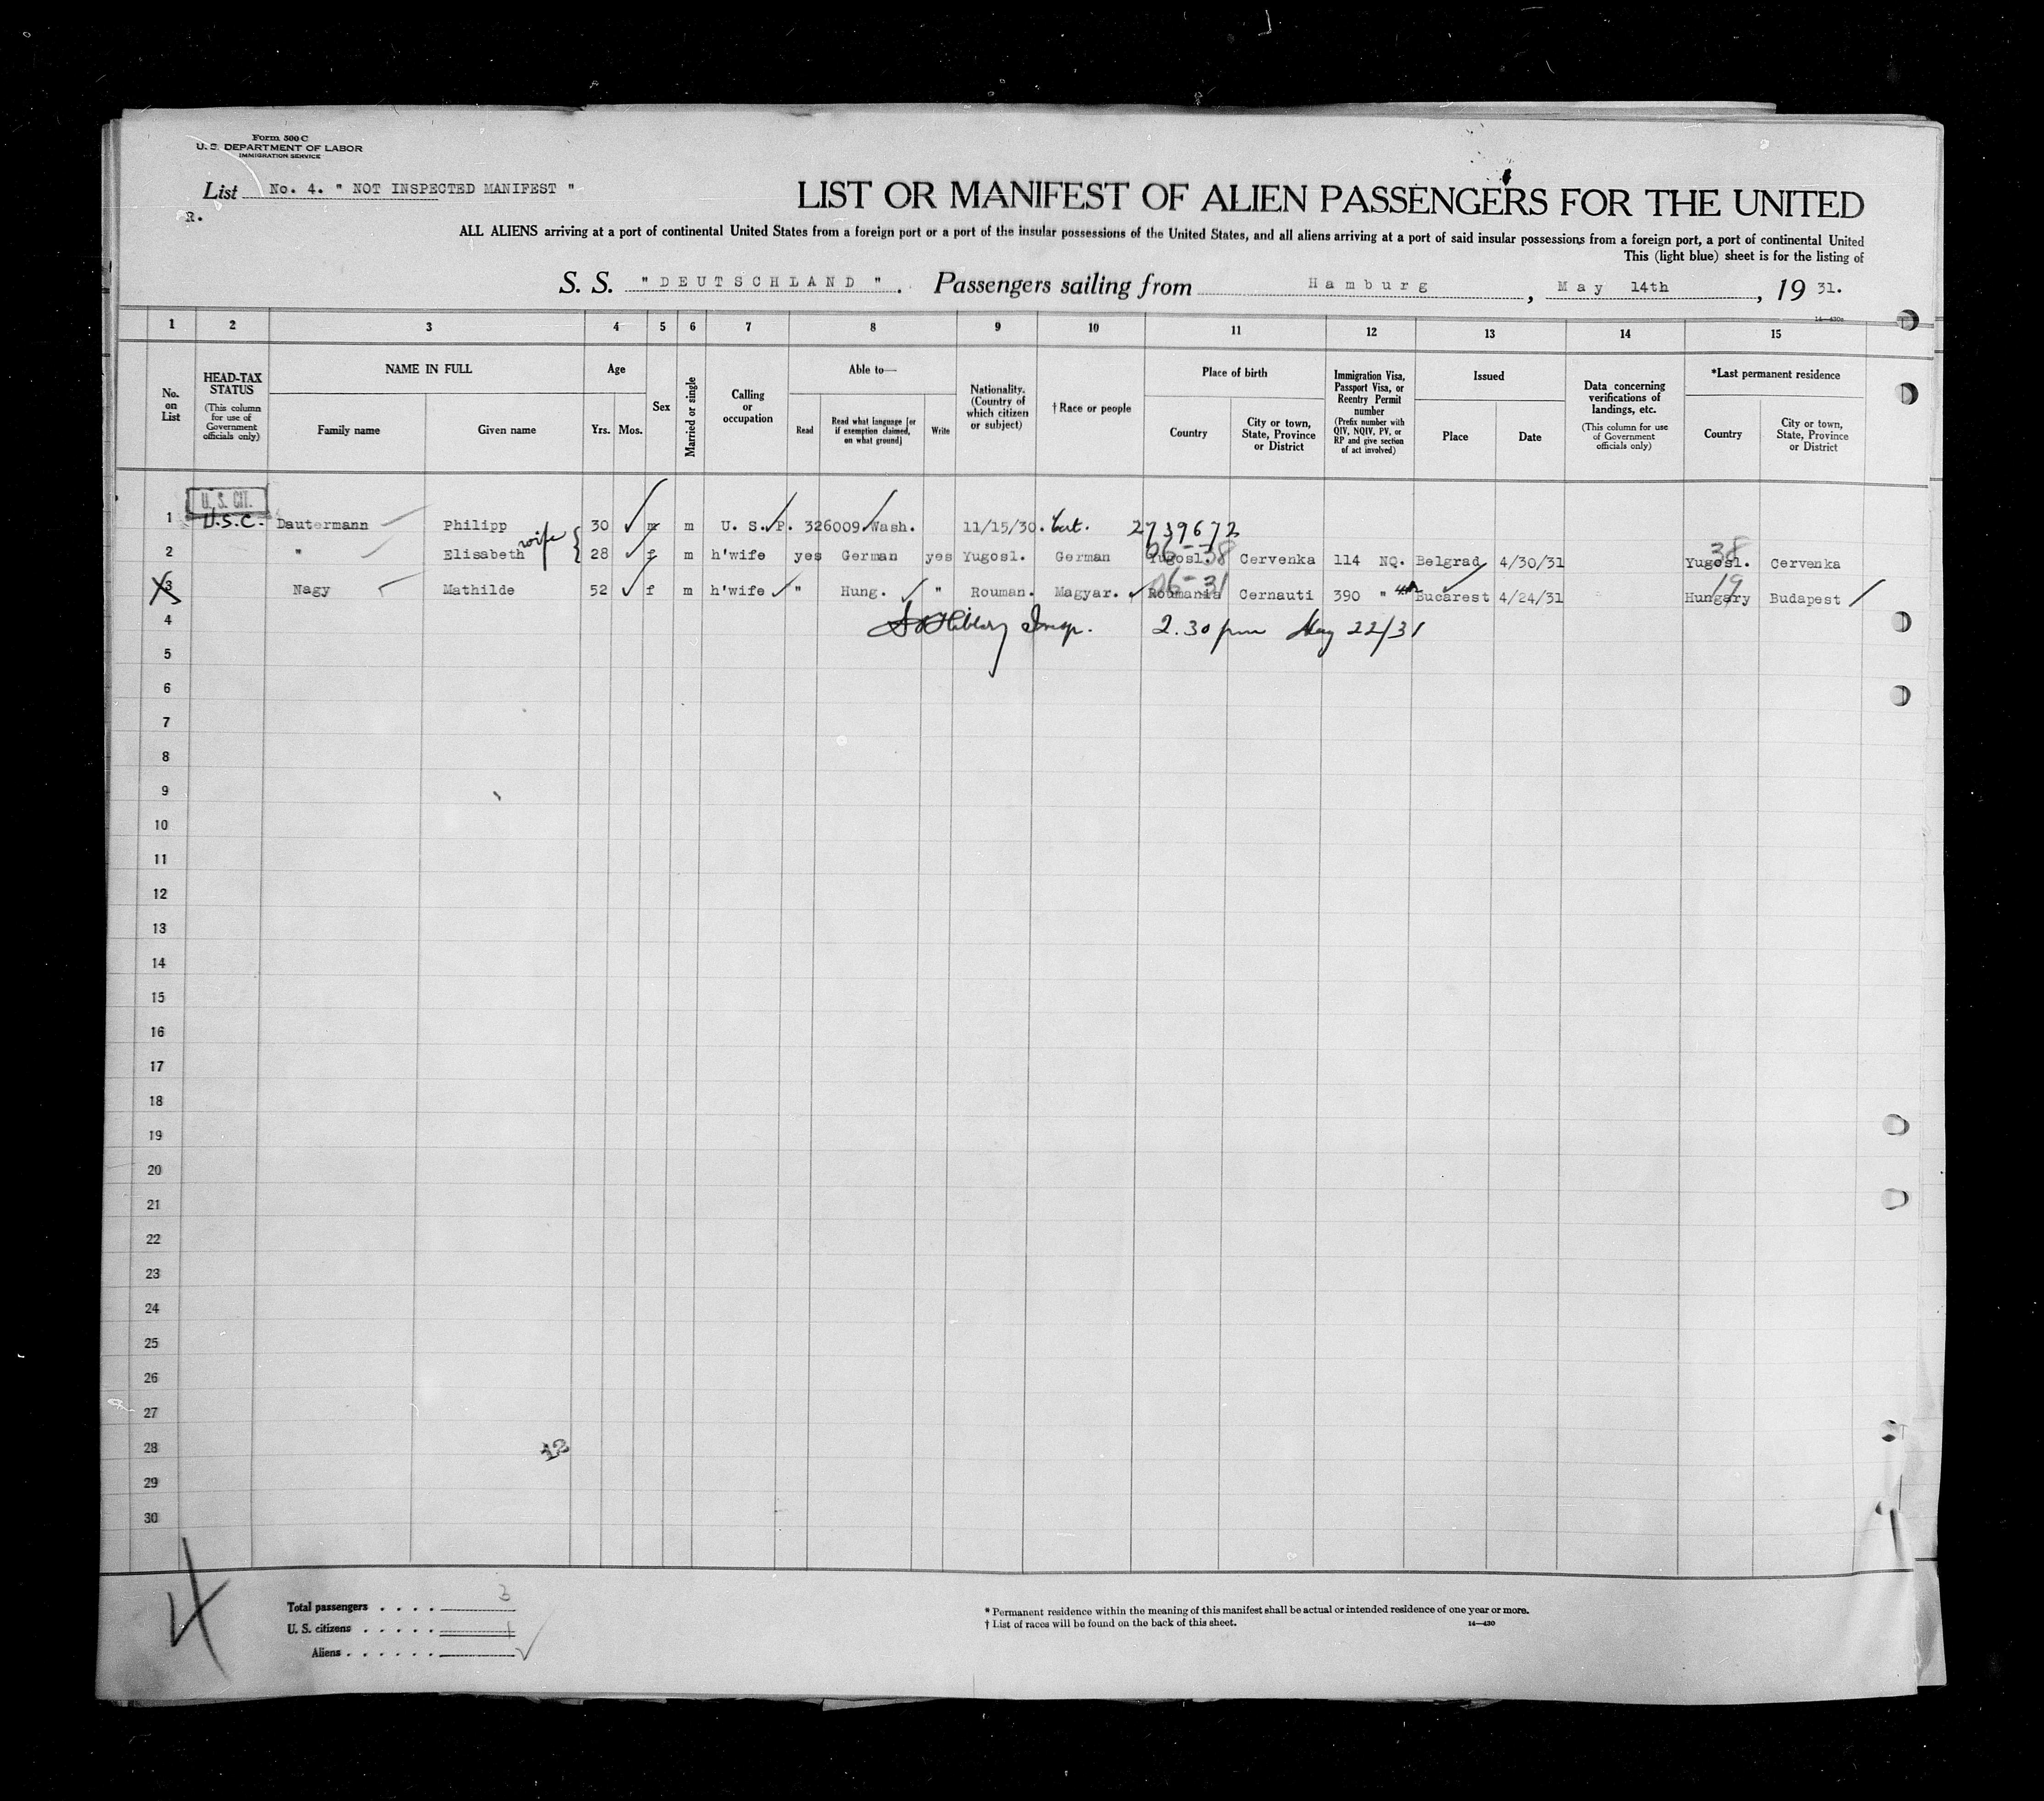 Form 500 C
U. S. DEPARTMENT OF LABOR
IMMIGRATION SERVICE
List No. 4. " NOT INSPECTED MANIFEST "
R.
LIST OR MANIFEST OF ALIEN PASSENGERS FOR THE UNITED
ALL ALIENS arriving at a port of continental United States from a foreign port or a port of the insular possessions of the United States, and all aliens arriving at a port of said insular possessions from a foreign port, a port of continental United
This (light blue) sheet is for the listing of
S. S. " DEUTSCHLAND ". Passengers sailing from Hamburg, May 14th, 19 31.
1 2 3 4 5 6 7 8 9 10 11 12 13 14 15
No. on List
HEAD-TAX STATUS (This column for use of Government officials only)
NAME IN FULL
Family name Given name
Age
Yrs. Mos.
Sex
Married or single
Calling or occupation
Able to—
Read Read what language [or if exemption claimed, on what ground] Write
Nationality. (Country of which citizen or subject)
† Race or people
Place of birth
Country City or town, State, Province or District
Immigration Visa, Passport Visa, or Reentry Permit number (Prefix number with QIV, NQIV, PV, or RP and give section of act involved)
Issued
Place Date
Data concerning verifications of landings, etc. (This column for use of Government officials only)
*Last permanent residence
Country City or town, State, Province or District
U. S. CIT.
1 U.S.C. Dautermann Philipp 30 m m U. S. P. 326009 Wash. 11/15/30. 2739672
2 " Elisabeth wife 28 f m h'wife yes German yes Yugosl. German Yugosl. Cervenka 114 NQ. Belgrad 4/30/31 Yugosl. Cervenka
06-38 38
3 Nagy Mathilde 52 f m h'wife " Hung. " Rouman. Magyar. Roumania Cernauti 390 " Bucarest 4/24/31 Hungary Budapest
06-31 19
4 Insp. 2.30 pm May 22/31
5
6
7
8
9
10
11
12
13
14
15
16
17
18
19
20
21
22
23
24
25
26
27
28
29
30
4
Total passengers . . . . 3
U. S. citizens . . . . . 1
Aliens . . . . . .
* Permanent residence within the meaning of this manifest shall be actual or intended residence of one year or more.
† List of races will be found on the back of this sheet. 14—430